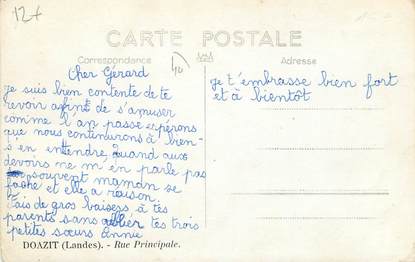 12+
CARTE POSTALE
Correspondance
Adresse
40
Cher Gérard
je suis bien contente de te
revoir afint de s'amuser
comme l'an passe espérons
que nous continurons à bien
s'en entendre, quand aux
devoirs ne m'en parle pas
souvent maman se
fache et elle a raison.
fais de gros baisess à tes
parents sans oublier tes trois
petites sœurs Annie
je t'embrasse bien fort
et à bientôt
DOAZIT (Landes). - Rue Principale.